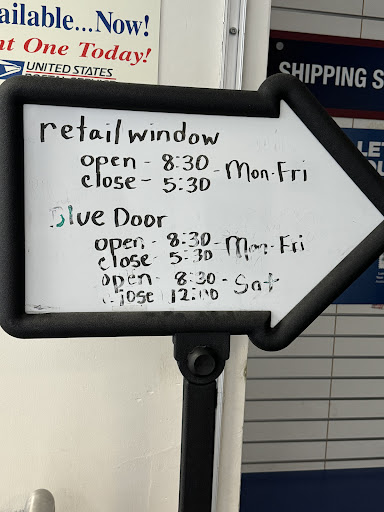 ailable...Now!
nt One Today!
UNITED STATES
POSTAL SERVICE
SHIPPING S
LE
retail window
open - 8:30 - Mon-Fri
close - 5:30
Blue Door
open - 8:30 - Mon-Fri
close - 5:30
open - 8:30 - Sat
close 12:00